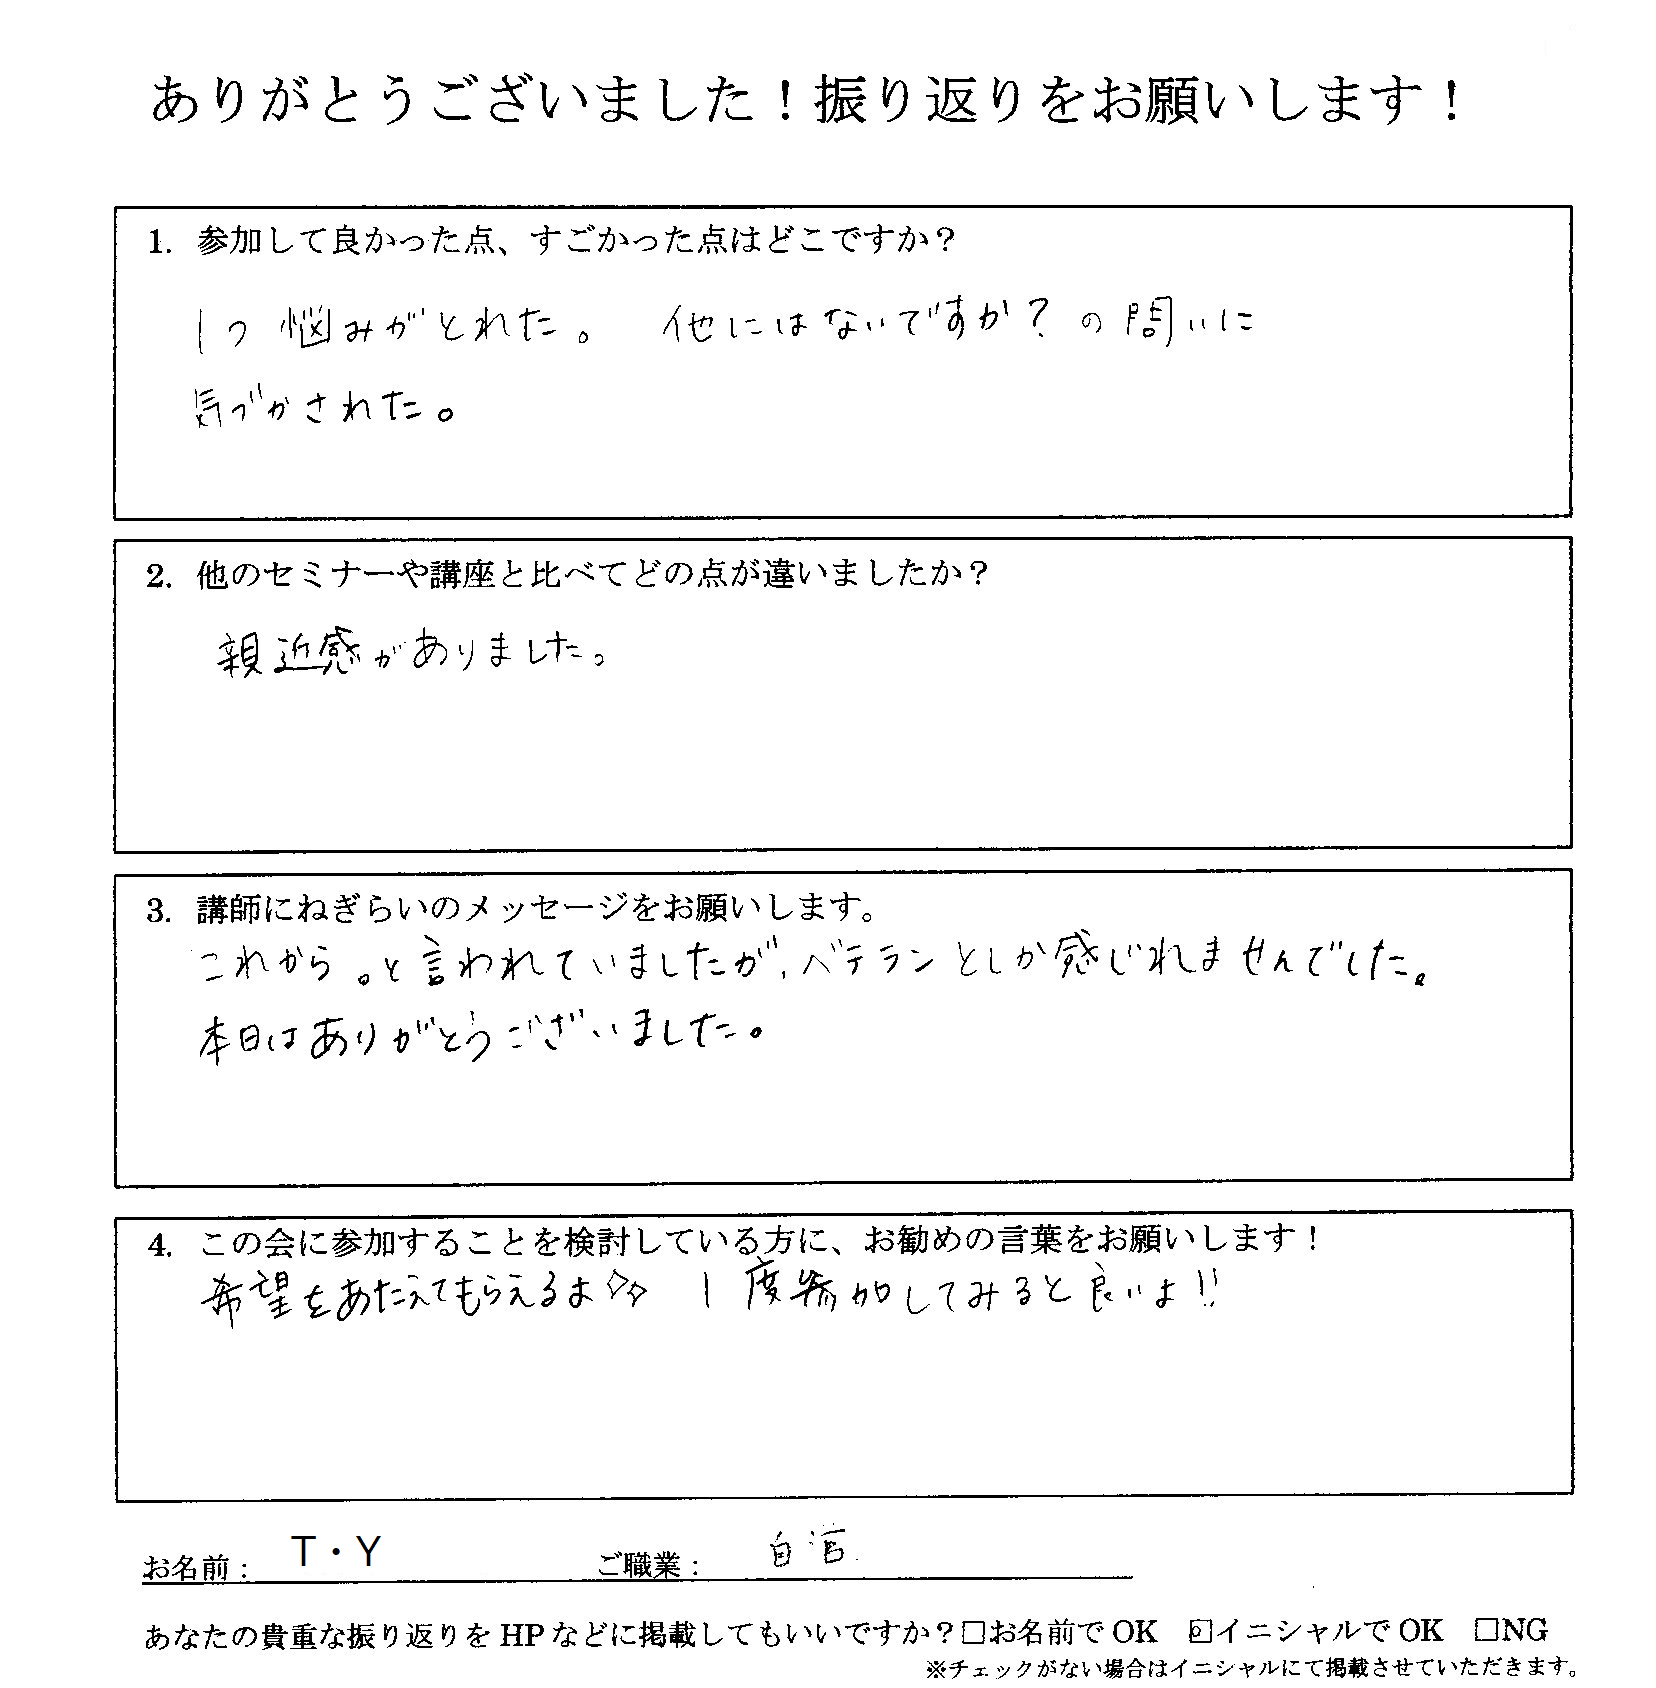 ありがとうございました！振り返りをお願いします！
1. 参加して良かった点、すごかった点はどこですか？
1つ 悩みがとれた。 他にはないですか？の問いに
気づかされた。
2. 他のセミナーや講座と比べてどの点が違いましたか？
親近感がありました。
3. 講師にねぎらいのメッセージをお願いします。
これから。と言われていましたが、ベテランとしか感じれませんでした。
本日はありがとうございました。
4. この会に参加することを検討している方に、お勧めの言葉をお願いします！
希望をあたえてもらえるよ 1度参加してみると良いよ!!
お名前： T・Y ご職業： 自営
あなたの貴重な振り返りをHPなどに掲載してもいいですか？□お名前でOK ☑イニシャルでOK □NG
※チェックがない場合はイニシャルにて掲載させていただきます。